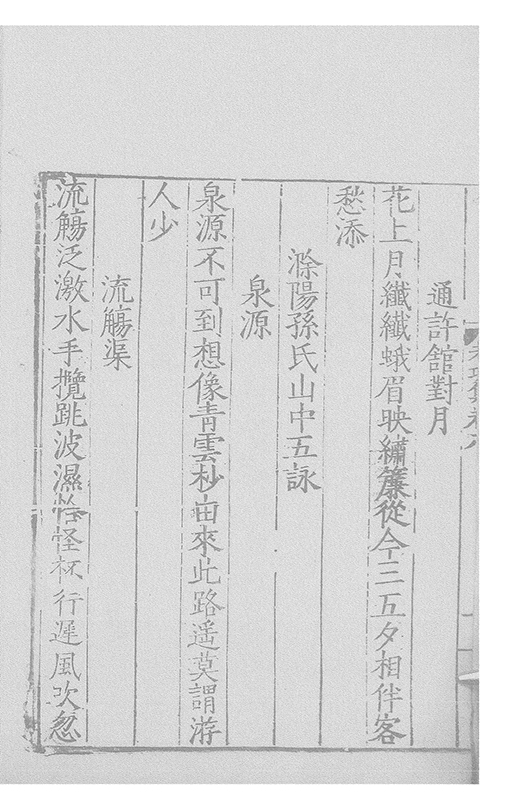 通許舘對月
花上月纖纖蛾眉映繡簾從今三五夕相伴客
愁添
滁陽孫氏山中五詠
泉源
泉源不可到想像青雲杪由來此路遥莫謂游
人少
流觴渠
流觴泛激水手攬跳波濕恠怪杯行遲風吹忽